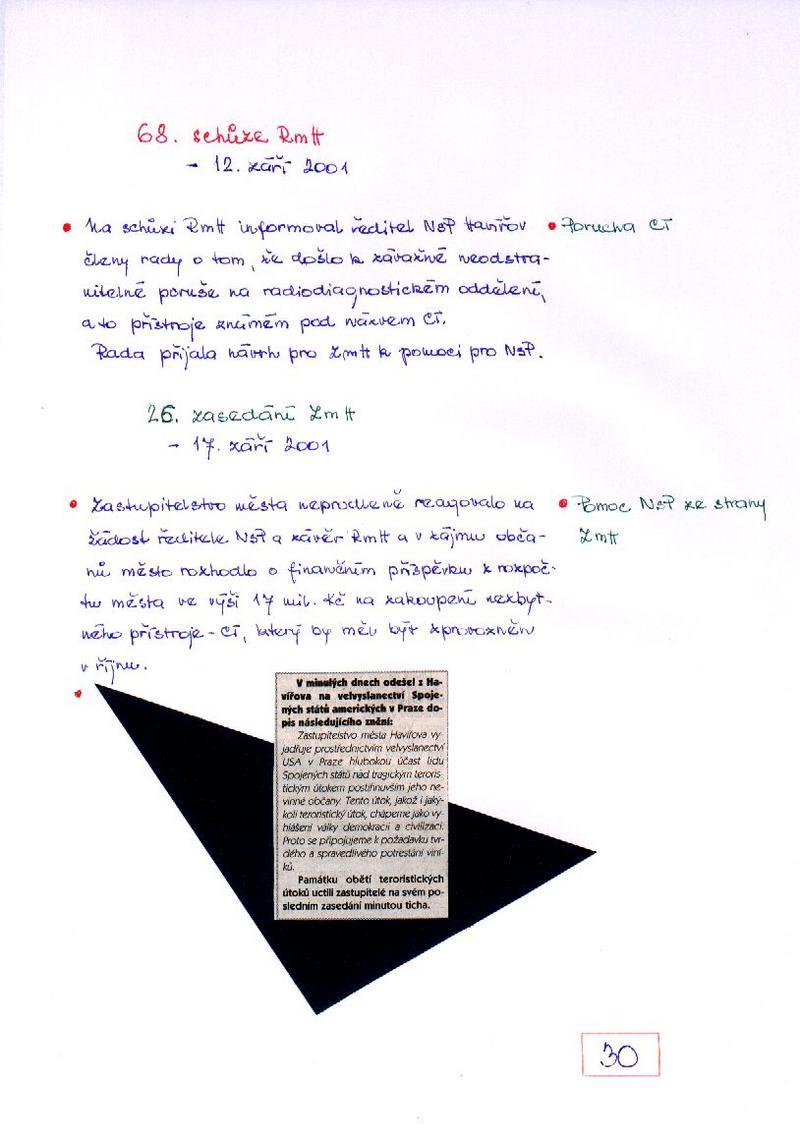 68. schůze RmH
- 12. září 2001
• Na schůzi RmH informoval ředitel NsP Havířov
členy rady o tom, že došlo k závažné neodstra-
nitelné poruše na radiodiagnostickém oddělení,
a to přístroje známém pod názvem CT.
Rada přijala návrh pro ZmH k pomoci pro NsP.
• Porucha CT
26. zasedání ZmH
- 17. září 2001
• Zastupitelstvo města neprodleně reagovalo na
žádost ředitele NsP a závěr RmH a v zájmu obča-
nů město rozhodlo o finančním příspěvku z rozpoč-
tu města ve výši 17 mil. Kč na zakoupení nezbyt-
ného přístroje - CT, který by měl být zprovozněn
v říjnu.
• Pomoc NsP ze strany
ZmH
•
V minulých dnech odešel z Ha-
vířova na velvyslanectví Spoje-
ných států amerických v Praze do-
pis následujícího znění:
Zastupitelstvo města Havířova vy-
jadřuje prostřednictvím velvyslanectví
USA v Praze hlubokou účast lidu
Spojených států nad tragickým teroris-
tickým útokem postihnuvším jeho ne-
vinné občany. Tento útok, jakož i jaký-
koli teroristický útok, chápeme jako vy-
hlášení války demokracii a civilizaci.
Proto se připojujeme k požadavku tvr-
dého a spravedlivého potrestání viní-
ků.
Památku obětí teroristických
útoků uctili zastupitelé na svém po-
sledním zasedání minutou ticha.
30